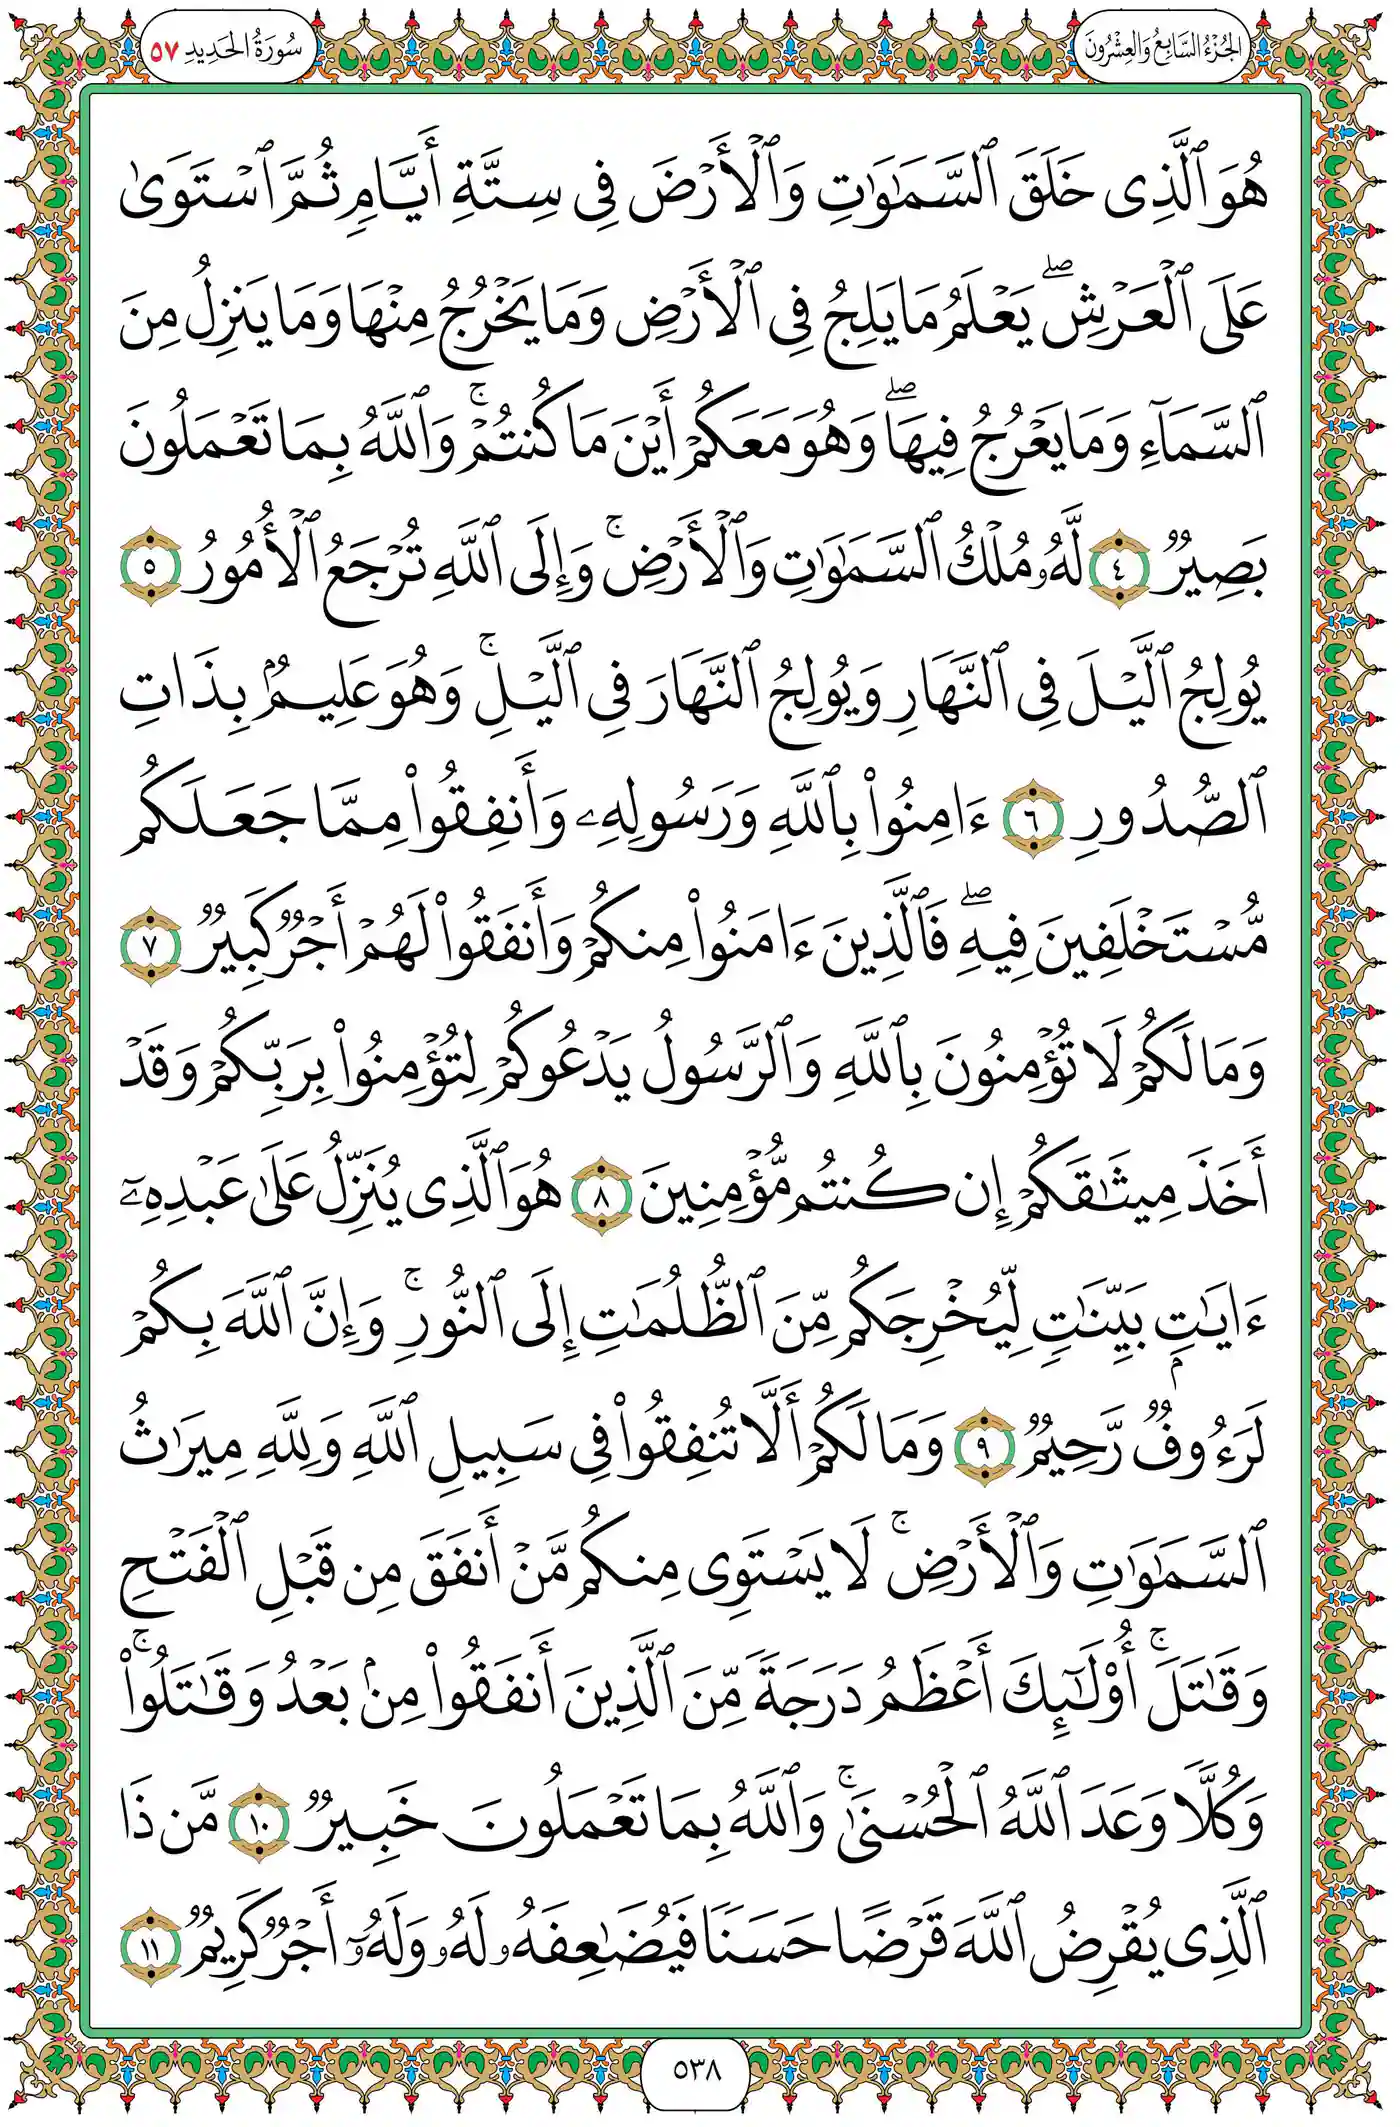 الجُزْءُ السَّابِعُ وَالعِشْرُونَ
سُورَةُ الحَدِيدِ ٥٧
هُوَ ٱلَّذِى خَلَقَ ٱلسَّمَٰوَٰتِ وَٱلْأَرْضَ فِى سِتَّةِ أَيَّامٍ ثُمَّ ٱسْتَوَىٰ
عَلَى ٱلْعَرْشِۖ يَعْلَمُ مَا يَلِجُ فِى ٱلْأَرْضِ وَمَا يَخْرُجُ مِنْهَا وَمَا يَنزِلُ مِنَ
ٱلسَّمَآءِ وَمَا يَعْرُجُ فِيهَاۖ وَهُوَ مَعَكُمْ أَيْنَ مَا كُنتُمْۚ وَٱللَّهُ بِمَا تَعْمَلُونَ
بَصِيرٌ ٤ لَّهُۥ مُلْكُ ٱلسَّمَٰوَٰتِ وَٱلْأَرْضِۚ وَإِلَى ٱللَّهِ تُرْجَعُ ٱلْأُمُورُ ٥
يُولِجُ ٱلَّيْلَ فِى ٱلنَّهَارِ وَيُولِجُ ٱلنَّهَارَ فِى ٱلَّيْلِۚ وَهُوَ عَلِيمٌۢ بِذَاتِ
ٱلصُّدُورِ ٦ ءَامِنُوا۟ بِٱللَّهِ وَرَسُولِهِۦ وَأَنفِقُوا۟ مِمَّا جَعَلَكُم
مُّسْتَخْلَفِينَ فِيهِۖ فَٱلَّذِينَ ءَامَنُوا۟ مِنكُمْ وَأَنفَقُوا۟ لَهُمْ أَجْرٌ كَبِيرٌ ٧
وَمَا لَكُمْ لَا تُؤْمِنُونَ بِٱللَّهِ وَٱلرَّسُولُ يَدْعُوكُمْ لِتُؤْمِنُوا۟ بِرَبِّكُمْ وَقَدْ
أَخَذَ مِيثَٰقَكُمْ إِن كُنتُم مُّؤْمِنِينَ ٨ هُوَ ٱلَّذِى يُنَزِّلُ عَلَىٰ عَبْدِهِۦٓ
ءَايَٰتٍۭ بَيِّنَٰتٍ لِّيُخْرِجَكُم مِّنَ ٱلظُّلُمَٰتِ إِلَى ٱلنُّورِۚ وَإِنَّ ٱللَّهَ بِكُمْ
لَرَءُوفٌ رَّحِيمٌ ٩ وَمَا لَكُمْ أَلَّا تُنفِقُوا۟ فِى سَبِيلِ ٱللَّهِ وَلِلَّهِ مِيرَٰثُ
ٱلسَّمَٰوَٰتِ وَٱلْأَرْضِۚ لَا يَسْتَوِى مِنكُم مَّنْ أَنفَقَ مِن قَبْلِ ٱلْفَتْحِ
وَقَٰتَلَۚ أُو۟لَٰٓئِكَ أَعْظَمُ دَرَجَةً مِّنَ ٱلَّذِينَ أَنفَقُوا۟ مِنۢ بَعْدُ وَقَٰتَلُوا۟ۚ
وَكُلًّا وَعَدَ ٱللَّهُ ٱلْحُسْنَىٰۚ وَٱللَّهُ بِمَا تَعْمَلُونَ خَبِيرٌ ١٠ مَّن ذَا
ٱلَّذِى يُقْرِضُ ٱللَّهَ قَرْضًا حَسَنًا فَيُضَٰعِفَهُۥ لَهُۥ وَلَهُۥٓ أَجْرٌ كَرِيمٌ ١١
٥٣٨